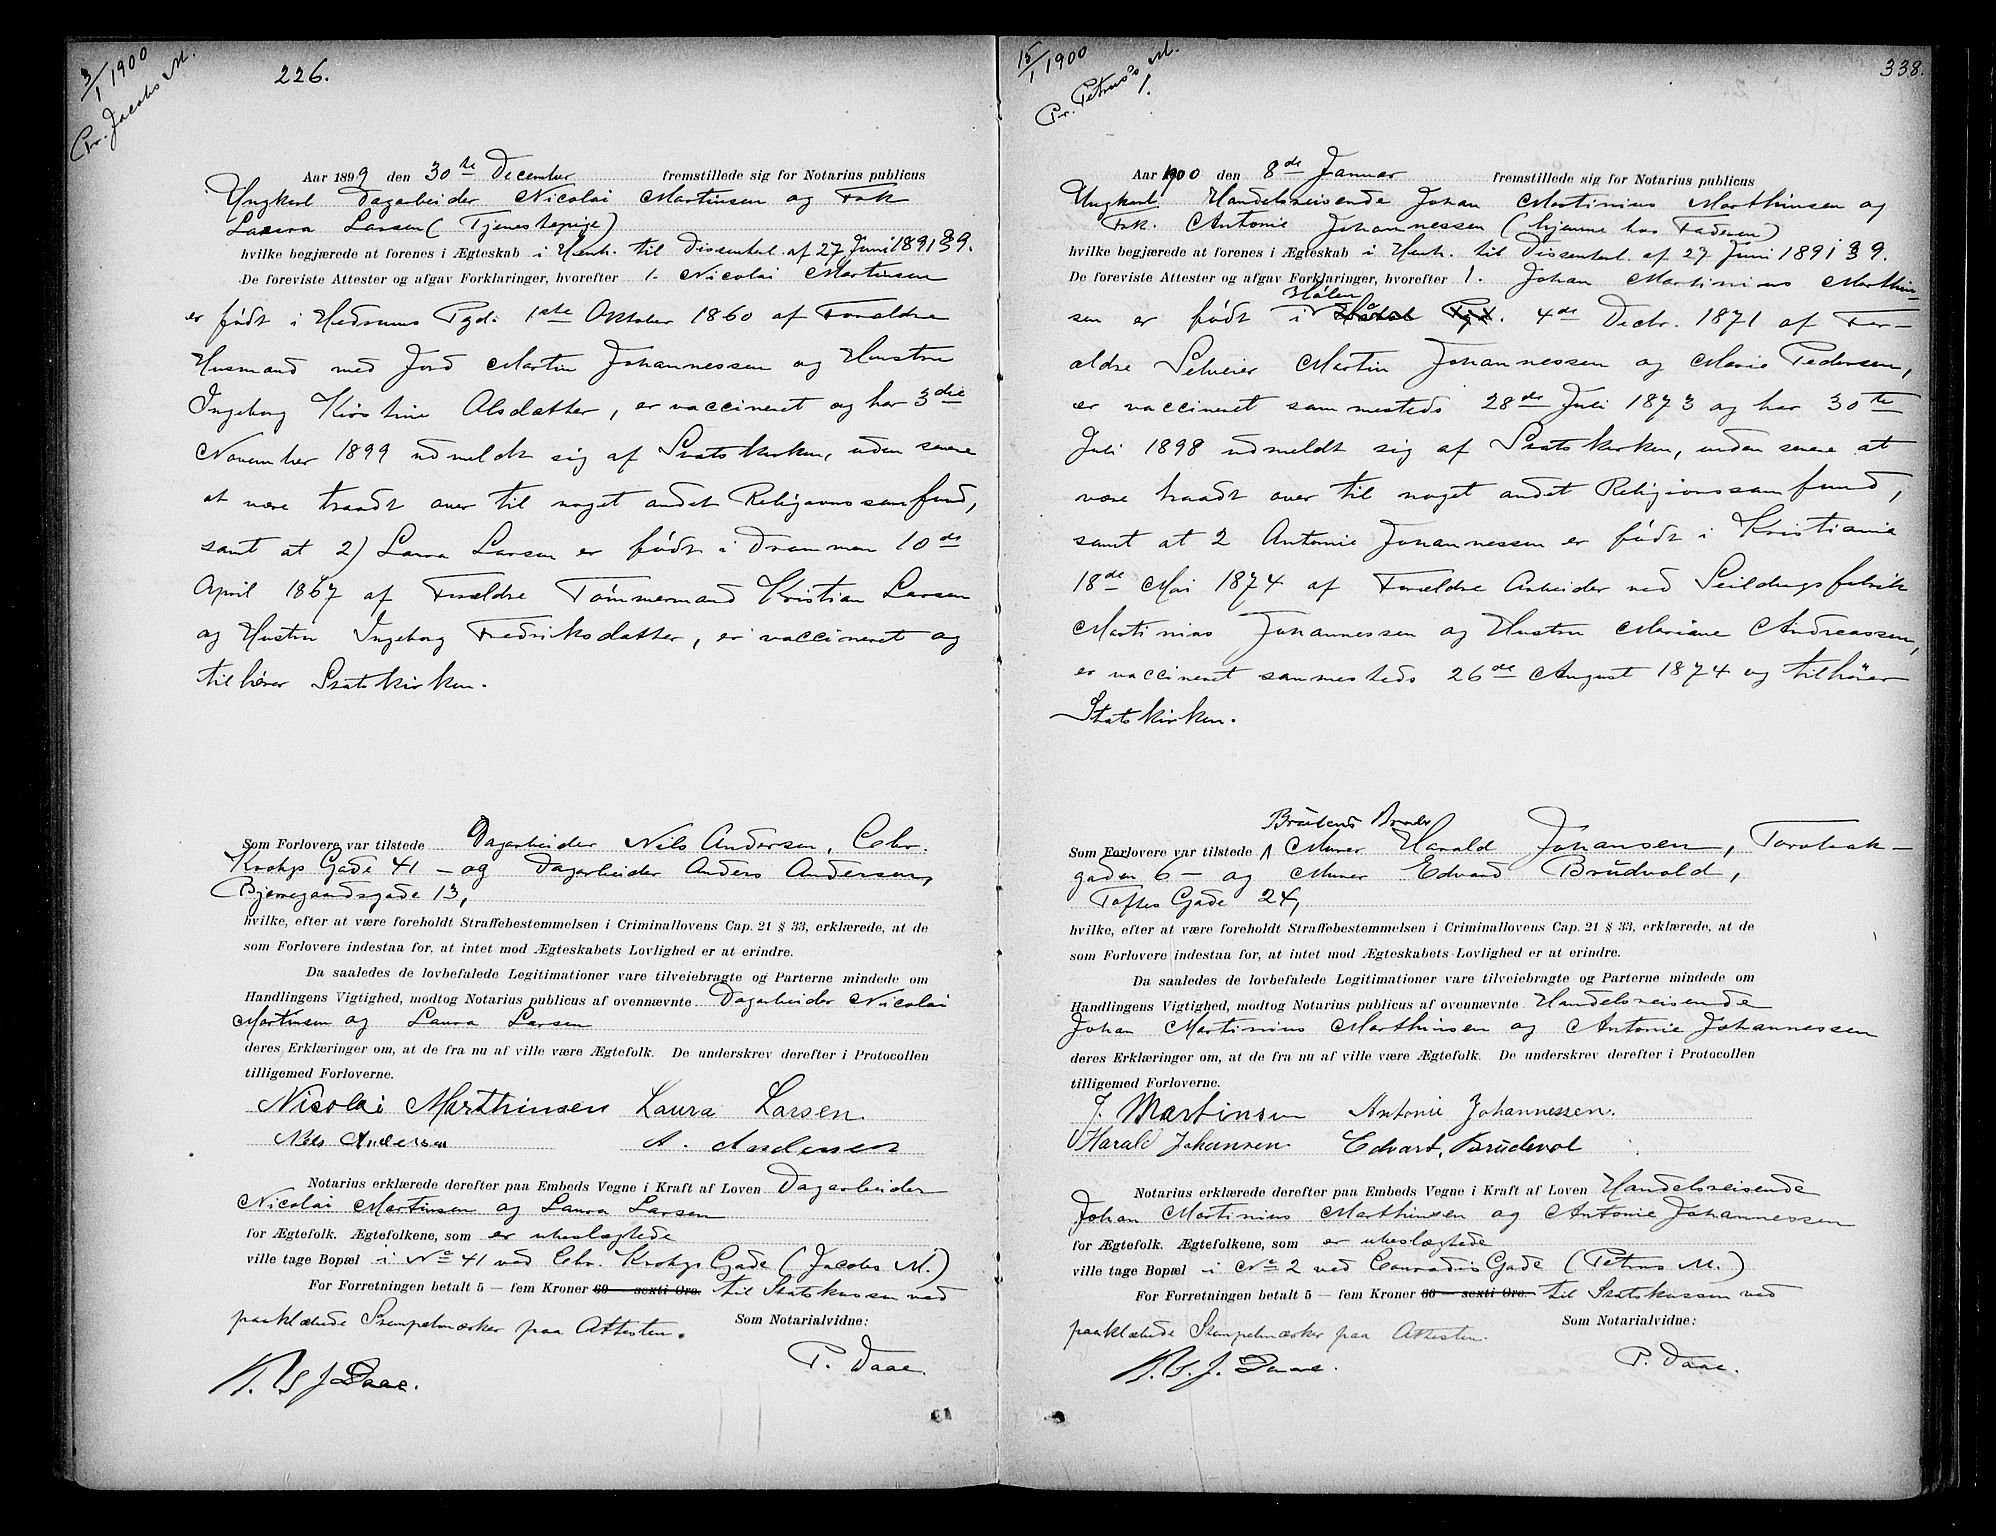 3/1 1900
Pr. Jacobs M.
226.
Aar 1899 den 30te December fremstillede sig for Notarius publicus
Ungkarl Dagarbeider Nicolai Martinsen og Frk
Laura Larsen (Tjenestepige)
hvilke begjærede at forenes i Ægteskab i Henh. til Dissenterl. af 27 Juni 1891 § 9.
De foreviste Attester og afgav Forklaringer, hvorefter 1. Nicolai Martinsen
er født i Hedrums Pgd. 1ste Oktober 1860 af Forældre
Husmand med Jord Martin Johannessen og Hustru
Ingeborg Kirstine Olsdatter, er vaccineret og har 3die
November 1899 udmeldt sig af Statskirken, uden senere
at være traadt over til noget andet Religionssamfund,
samt at 2) Laura Larsen er født i Drammen 10de
April 1867 af Forældre Tømmermand Kristian Larsen
og Hustru Ingeborg Fredriksdatter, er vaccineret og
tilhører Statskirken.
Som Forlovere var tilstede Dagarbeider Nils Andersen, Chr.
Krohgs Gade 41 – og Dagarbeider Anders Andersen,
Bjerregaardsgade 13,
hvilke, efter at være foreholdt Straffebestemmelsen i Criminallovens Cap. 21 § 33, erklærede, at de
som Forlovere indestaa for, at intet mod Ægteskabets Lovlighed er at erindre.
Da saaledes de lovbefalede Legitimationer vare tilveiebragte og Parterne mindede om
Handlingens Vigtighed, modtog Notarius publicus af ovennævnte Dagarbeider Nicolai
Martinsen og Laura Larsen
deres Erklæringer om, at de fra nu af ville være Ægtefolk. De underskrev derefter i Protocollen
tilligemed Forloverne.
Nicolai Marthinsen Laura Larsen.
Nils Andersen A. Andersen
Notarius erklærede derefter paa Embeds Vegne i Kraft af Loven Dagarbeider
Nicolai Martinsen og Laura Larsen
for Ægtefolk. Ægtefolkene, som er ubeslægtede
ville tage Bopæl i No 41 ved Chr. Krohgs Gade (Jacobs M.)
For Forretningen betalt 5 – fem Kroner 60 – sexti Øre. til Statskassen ved
paaklæbede Stempelmærker paa Attesten.
Som Notarialvidne:
P. Daae.
Daae.
15/1 1900
Pr. Petrus's M.
1.
338.
Aar 1900 den 8de Januar fremstillede sig for Notarius publicus
Ungkarl Handelsreisende Johan Martinius Marthinsen og
Frk. Antonie Johannessen (hjemme hos Faderen)
hvilke begjærede at forenes i Ægteskab i Henh. til Dissenterl. af 27 Juni 1891 § 9.
De foreviste Attester og afgav Forklaringer, hvorefter 1. Johan Martinius Marthin-
Hølen
sen er født i Pgd. 4de Decbr. 1871 af For-
ældre Selveier Martin Johannessen og Marie Pedersen,
er vaccineret sammesteds 28de Juli 1873 og har 30te
Juli 1898 udmeldt sig af Statskirken, uden senere at
være traadt over til noget andet Religionssamfund,
samt at 2 Antonie Johannessen er født i Kristiania
18de Mai 1874 af Forældre Arbeider ved Seildugsfabrik
Martinius Johannessen og Hustru Mariane Andreassen,
er vaccineret sammesteds 26de August 1874 og tilhører
Statskirken.
Brudens Broder
Som Forlovere var tilstede Murer Harald Johansen, Torvbak-
gaden 6 – og Murer Edvard Brudvold,
Toftes Gade 24,
hvilke, efter at være foreholdt Straffebestemmelsen i Criminallovens Cap. 21 § 33, erklærede, at de
som Forlovere indestaa for, at intet mod Ægteskabets Lovlighed er at erindre.
Da saaledes de lovbefalede Legitimationer vare tilveiebragte og Parterne mindede om
Handlingens Vigtighed, modtog Notarius publicus af ovennævnte Handelsreisende
Johan Martinius Marthinsen og Antonie Johannessen
deres Erklæringer om, at de fra nu af ville være Ægtefolk. De underskrev derefter i Protocollen
tilligemed Forloverne.
J. Martinsen Antonie Johannessen.
Harald Johansen Edvart. Brudevol
Notarius erklærede derefter paa Embeds Vegne i Kraft af Loven Handelsreisende
Johan Martinius Marthinsen og Antonie Johannessen
for Ægtefolk. Ægtefolkene, som er ubeslægtede
ville tage Bopæl i No 2 ved Conradis Gade (Petrus M.)
For Forretningen betalt 5 – fem Kroner 60 – sexti Øre. til Statskassen ved
paaklæbede Stempelmærker paa Attesten.
Som Notarialvidne:
P. Daae.
Daae.